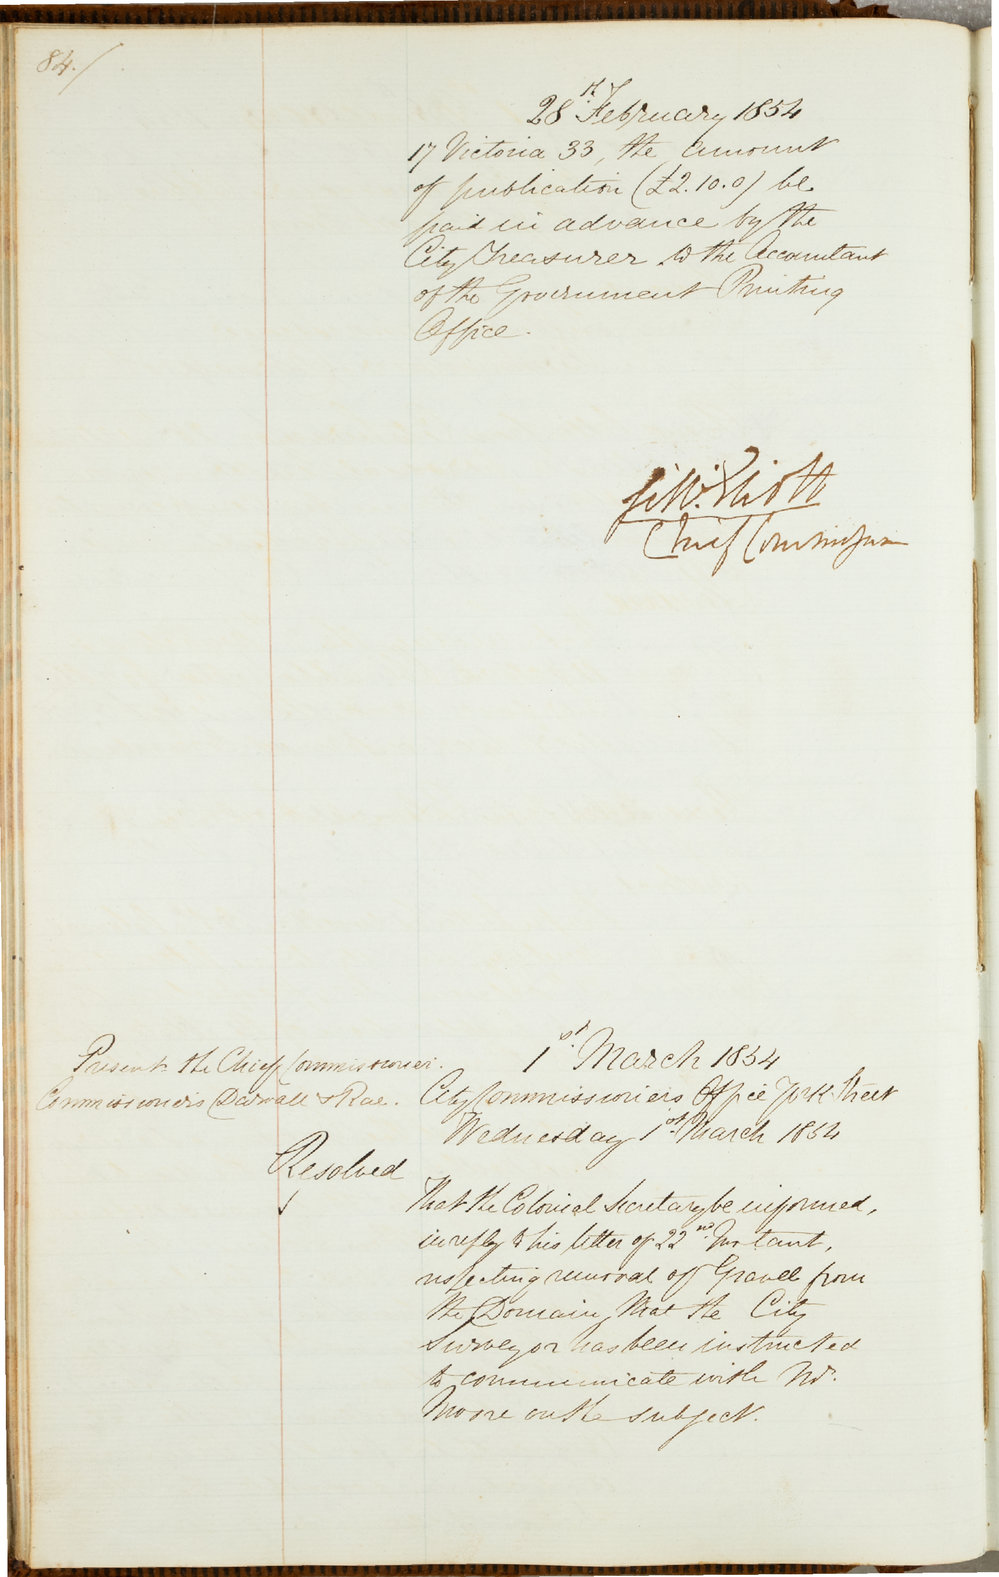 84./
28th February 1854
17 Victoria 33, the amount
of publication (£2.10.0) be
paid in advance by the
City Treasurer to the Accountant
of the Government Printing
Office.
Elliott
Chief Commissioner
1st March 1854
Present the Chief Commissioner.
Commissioners Darvall & Rae.
City Commissioners Office York Street
Wednesday 1st March 1854
Resolved
That the Colonial Secretary be informed,
in reply to his letter of 22nd Instant,
respecting removal of Gravel from
the Domain, that the City
Surveyor has been instructed
to communicate with Mr.
Moore on the subject.